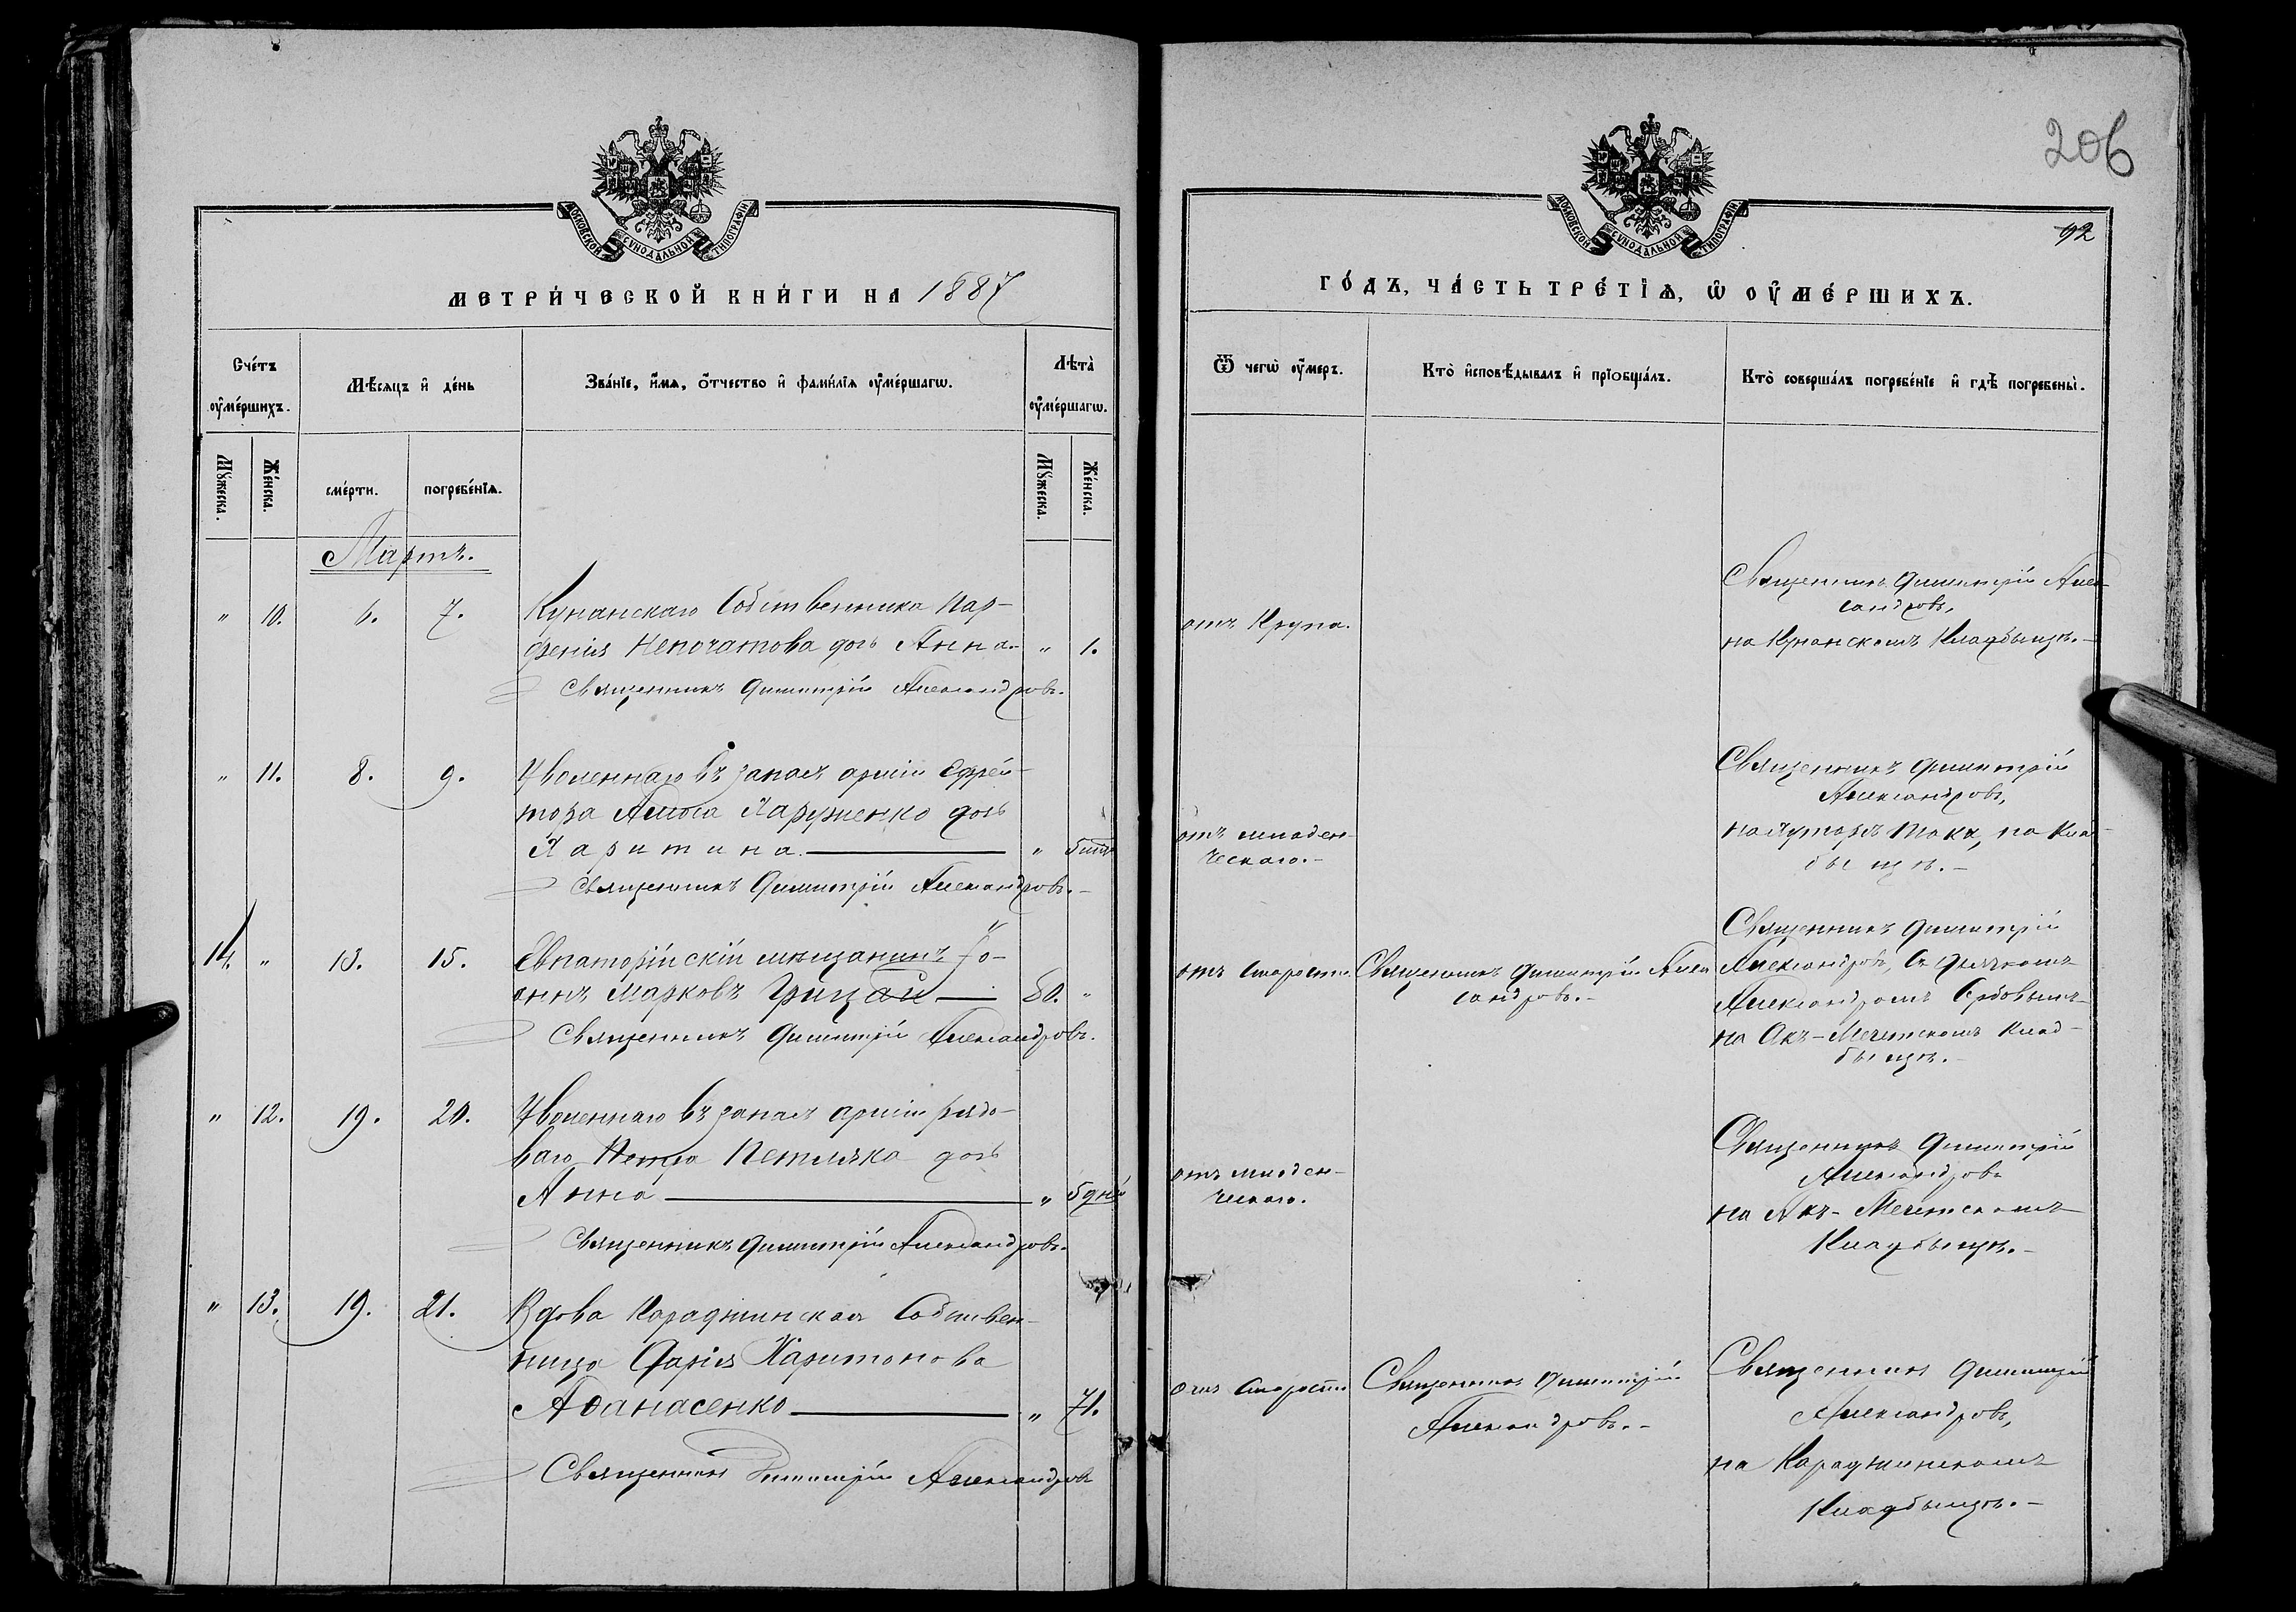 206
92
МОСКОВСКОЙ СѴНОДАЛЬНОЙ ТИПОГРАФІИ
МОСКОВСКОЙ СѴНОДАЛЬНОЙ ТИПОГРАФІИ
МЕТРИ́ЧЕСКОЙ КНИ́ГИ НА 1887
ГО́ДЪ, ЧА́СТЬ ТРЕ́ТІѦ, Ѡ҆ ОУ҆МЕ́РШИХЪ.
Сче́тъ
оу҆ме́ршихъ.
Мꙋ́жеска.
Же́нска.
Мѣ́сяцъ и҆ де́нь
сме́рти.
погребе́нїѧ.
Зва́нїе, и҆́мѧ, о҆́тчество и҆ фами́лїѧ оу҆ме́ршагѡ.
Лѣта̀
оу҆ме́ршагѡ.
Мꙋ́жеска.
Же́нска.
Ѿ чегѡ̀ оу҆́меръ.
Кто̀ и҆сповѣ́дывалъ и҆ прїобща́лъ.
Кто̀ соверша́лъ погребе́нїе и҆ гдѣ̀ погребены̀.
Мартъ.
" 10. 6. 7. Кунанскаго Собственника Пар-
фенія Непочатова дочь Анна. " 1.
Священникъ Димитрій Александровъ.
отъ Крупа.
Священникъ Димитрій Алек-
сандровъ,
на Кунанскомъ Кладбищѣ.-
" 11. 8. 9. Уволеннаго въ запасъ арміи Ефрей-
тора Амоса Харуженко дочь
Харитина. "
Священникъ Димитрій Александровъ.-
отъ младен-
ческаго.-
Священникъ Димитрій
Александровъ,
на хуторѣ на Кла-
бищѣ.-
14. " 13. 15. Евпаторійскій мѣщанинъ Іо-
аннъ Марковъ Грицай 80. "
Священникъ Димитрій Александровъ.
отъ Старости
Священникъ Димитрій Алек
сандровъ.-
Священникъ Димитрій
Александровъ, съ дьячкомъ
Александромъ
на Акъ-Мечетскомъ Клад-
бищѣ.-
" 12. 19. 20. Уволеннаго въ запасъ арміи рядо-
ваго Петра Петляка дочь
Анна " 5 дней
Священникъ Димитрій Александровъ.
отъ младен-
ческаго.
Священникъ Димитрій
Александровъ
на Акъ-Мечетскомъ
Кладбищѣ.-
" 13. 19. 21. Вдова Караджинская Собствен-
ница Дарія Харитонова
Аѳанасенко " 71.
Священникъ Димитрій Александровъ
отъ Старости
Священникъ Димитрій
Александровъ.-
Священникъ Димитрій
Александровъ,
на Караджинскомъ
Кладбищѣ.-